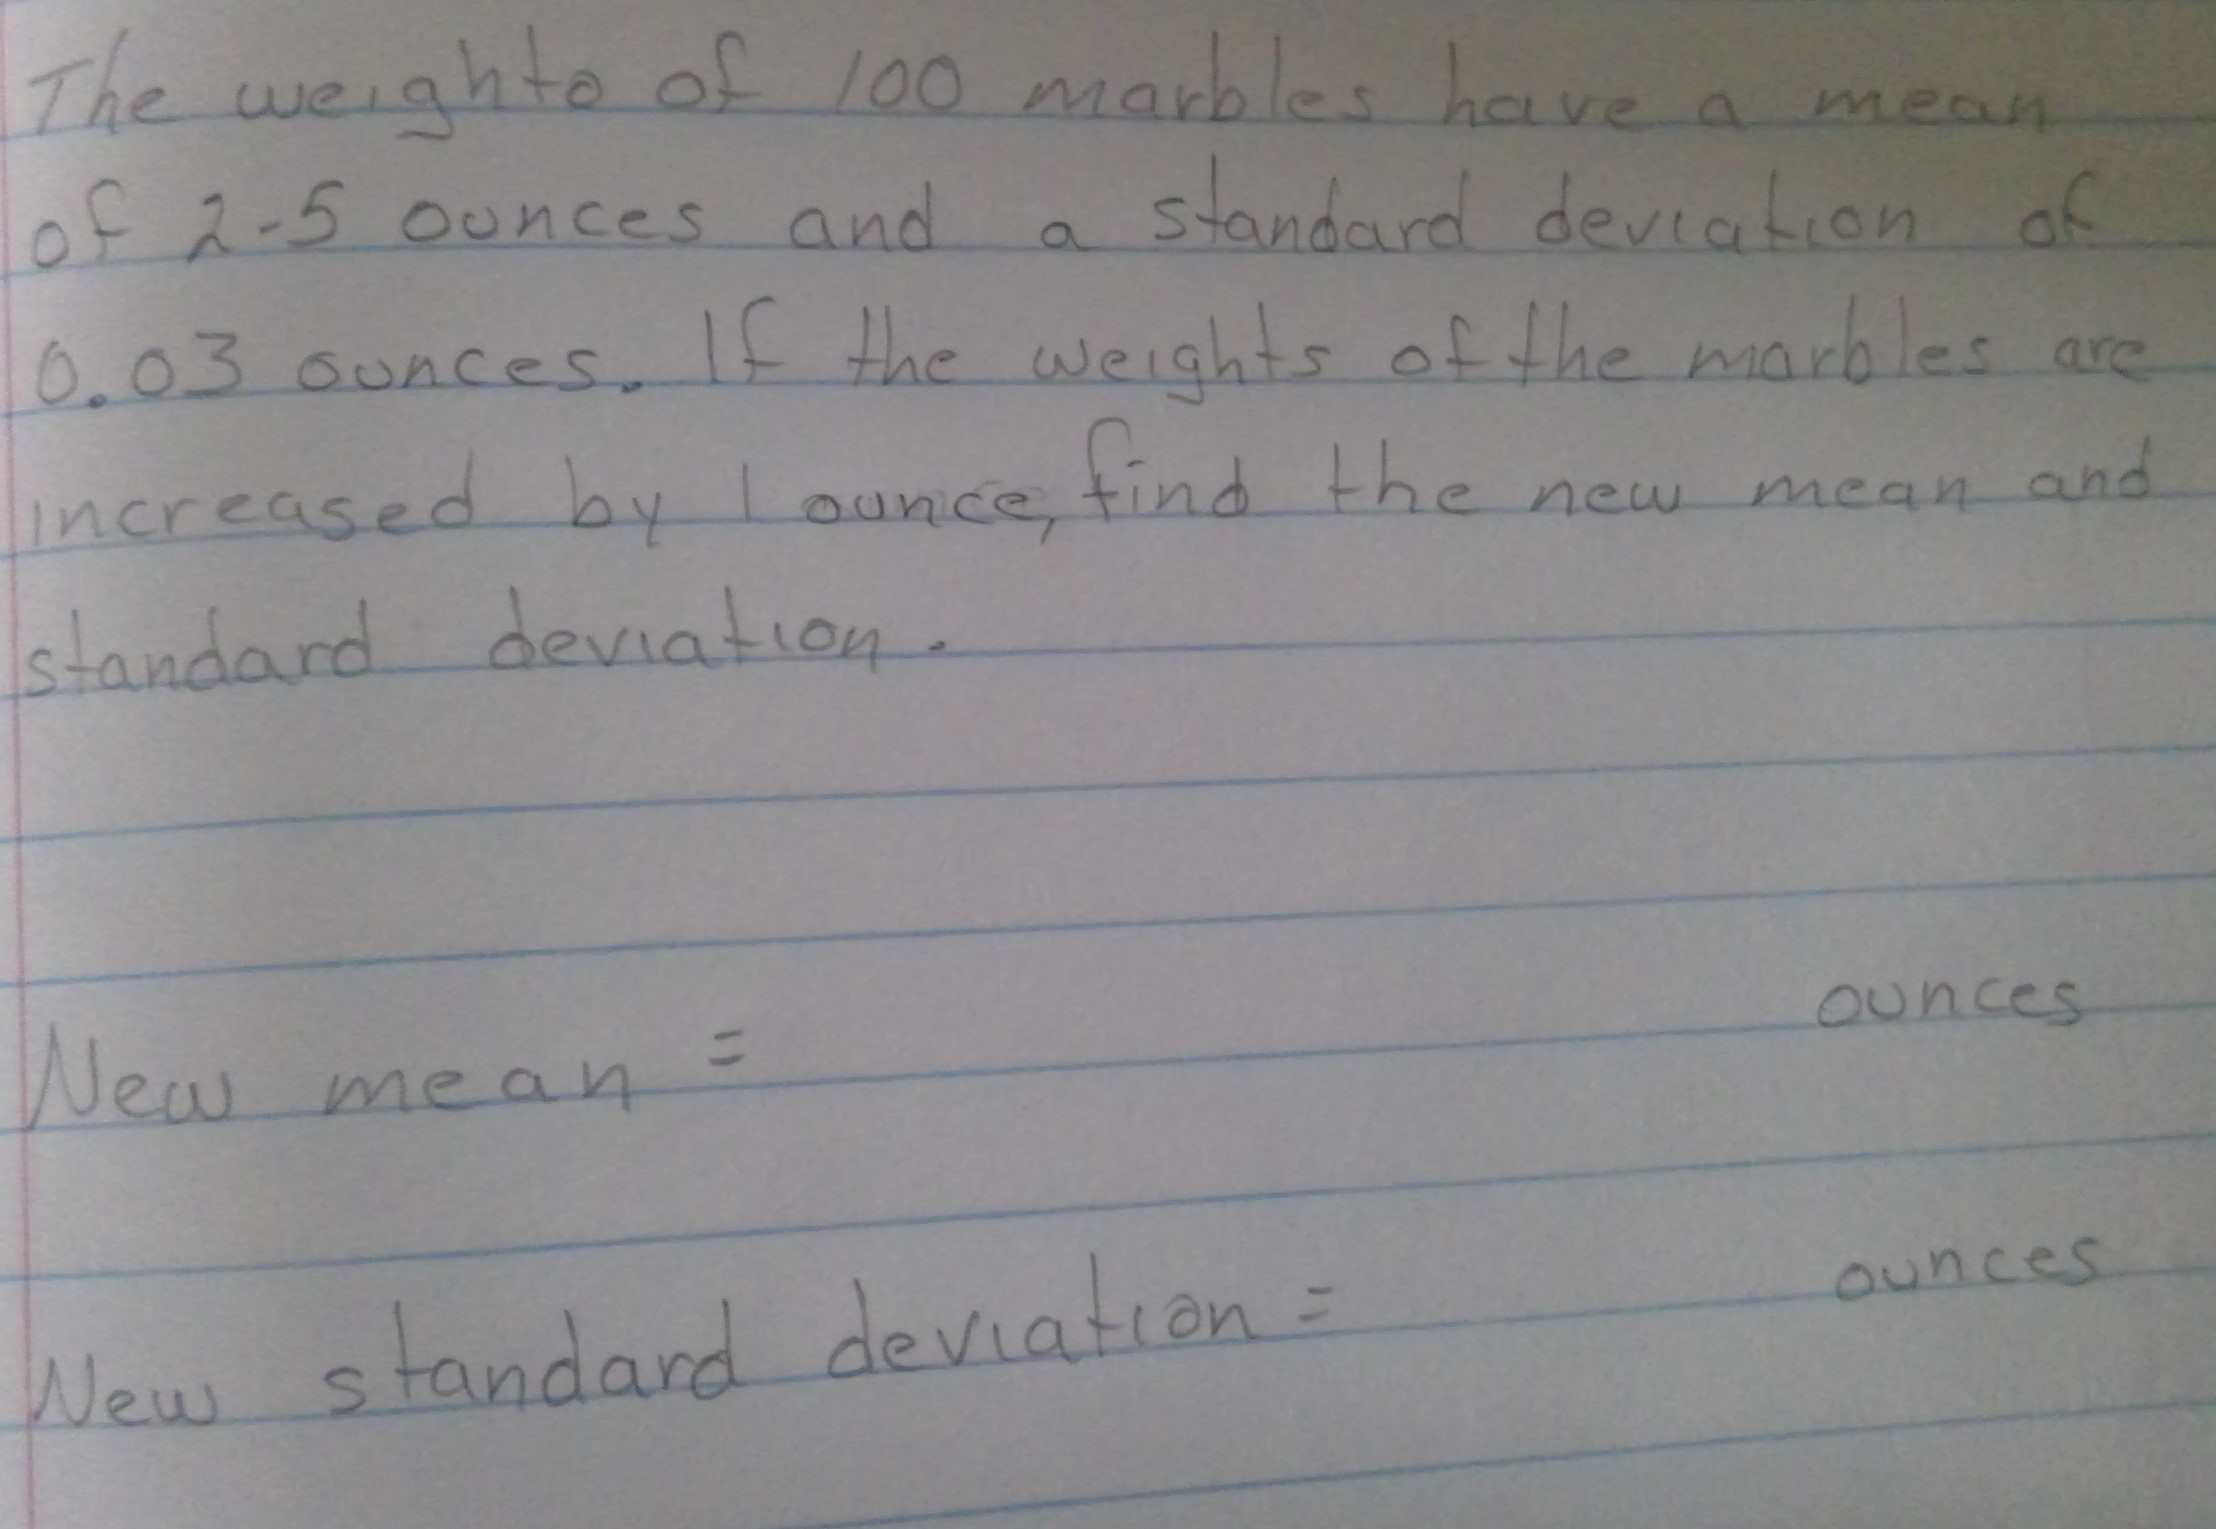 The weights of 100 marbles have a mean
of 2-5 ounces and a standard deviation of
0.03 ounces. If the weights of the marbles are
increased by 1 ounce, find the new mean and
standard deviation.
New mean = ounces
New standard deviation = ounces